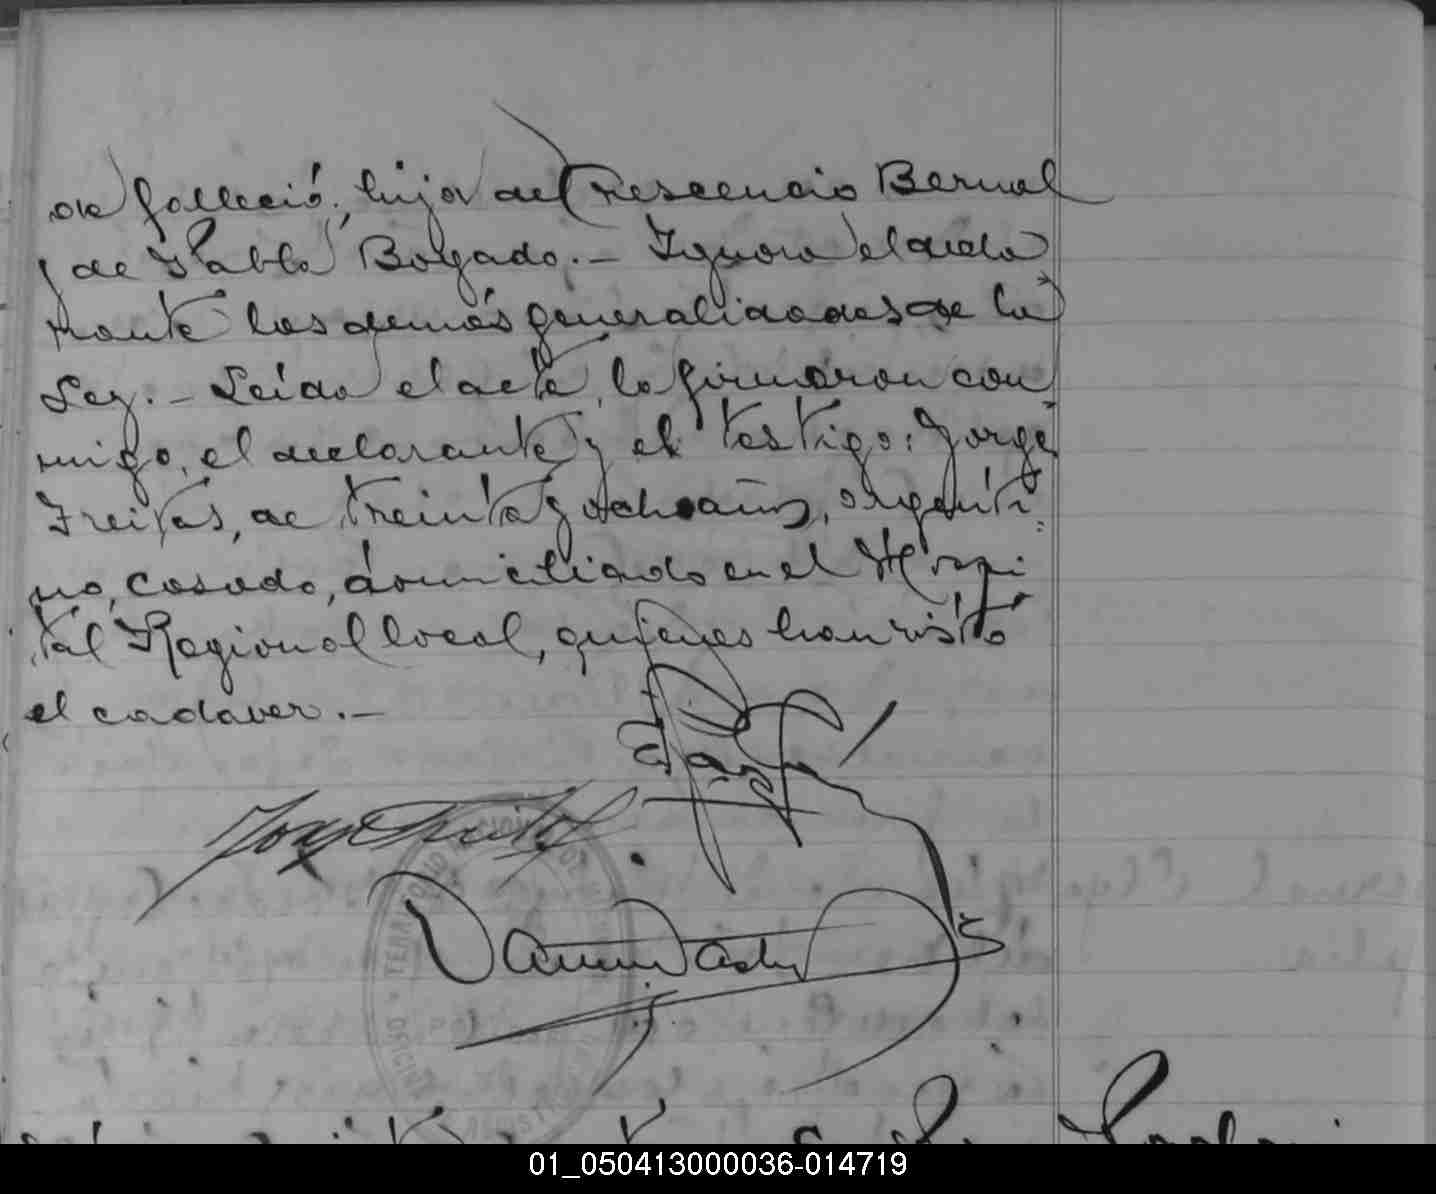 de falleció, hija de Crescencio Bernal
y de Pabla Bogado.- Ignora el decla
rante las demás generalidades de la
Ley.- Leída el acta, la firmaron con
migo, el declarante y el testigo: Jorge
Freitas, de treinta y ocho años, argenti=
no, casado, domiciliado en el Hospi
tal Regional local, quienes han visto
el cadaver.-
TERRITORIO NACIONAL DE MISIONES
REGISTRO
01_050413000036-014719